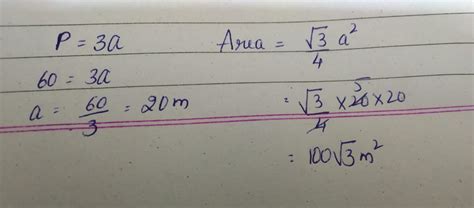 P = 3a
60 = 3a
a = 60/3 = 20m
Area = √3/4 a²
= √3/4 × 20 5 × 20
= 100√3 m²